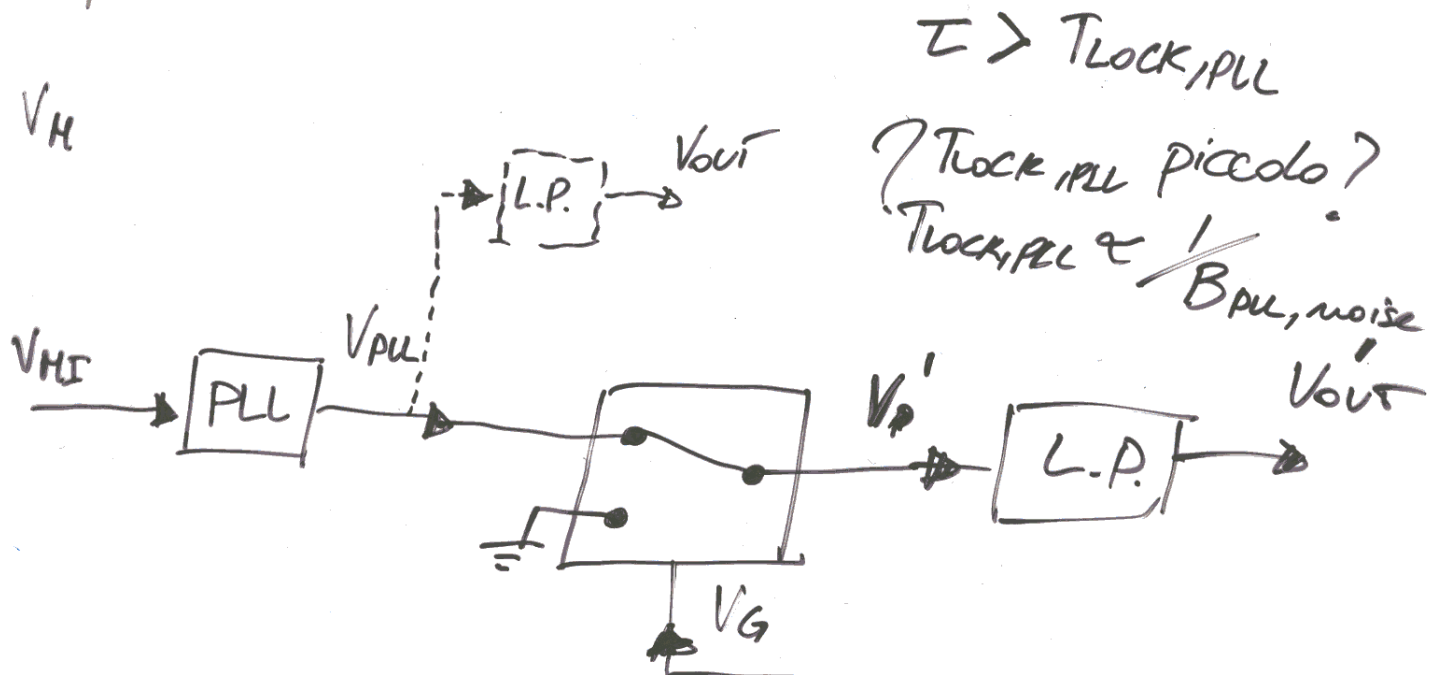 τ > TLOCK,PLL
VM
VOUT
L.P.
? TLOCK,PLL piccolo?
TLOCK,PLL ∝ 1/BPLL,noise
VMI
VPLL
PLL
VP'
V'OUT
L.P.
VG